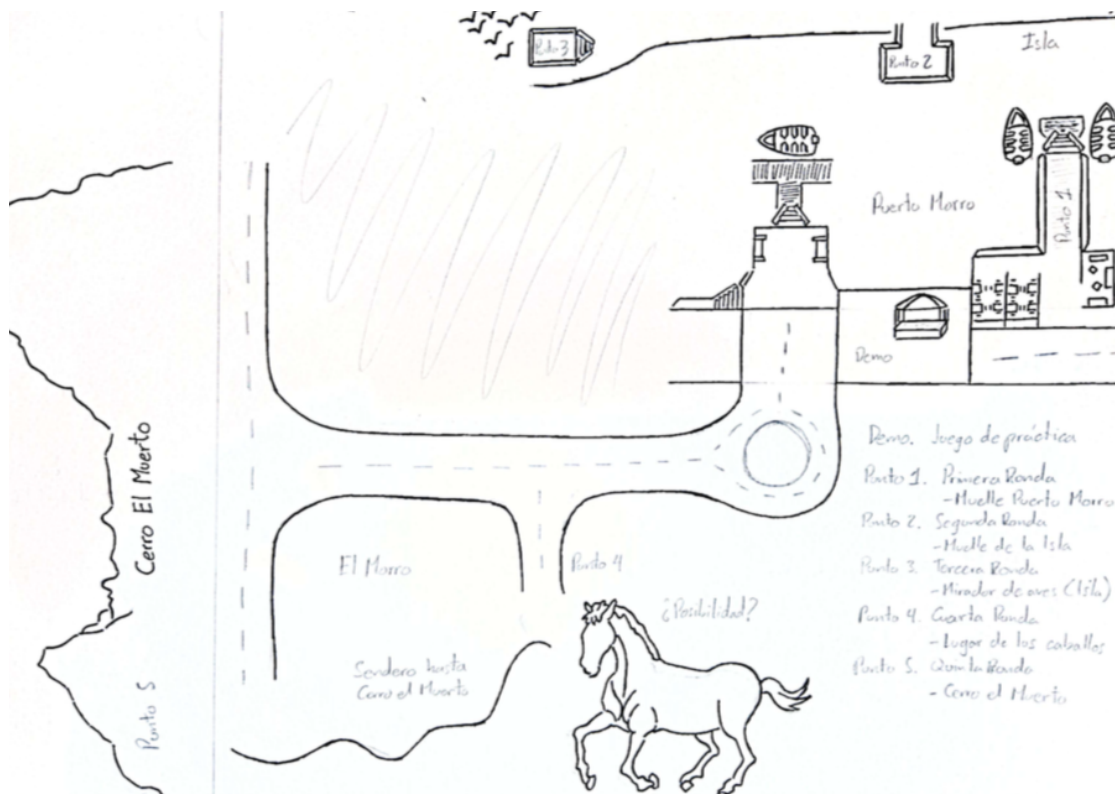 Punto 3
Punto 2
Isla
Puerto Morro
Punto 1
Demo
Cerro El Muerto
Punto 5
El Morro
Punto 4
¿Posibilidad?
Sendero hasta
Cerro el Muerto
Demo. Juego de práctica
Punto 1. Primera Ronda
-Muelle Puerto Morro
Punto 2. Segunda Ronda
-Muelle de la Isla
Punto 3. Tercera Ronda
-Mirador de aves (Isla)
Punto 4. Cuarta Ronda
-Lugar de los caballos
Punto 5. Quinta Ronda
- Cerro el Muerto